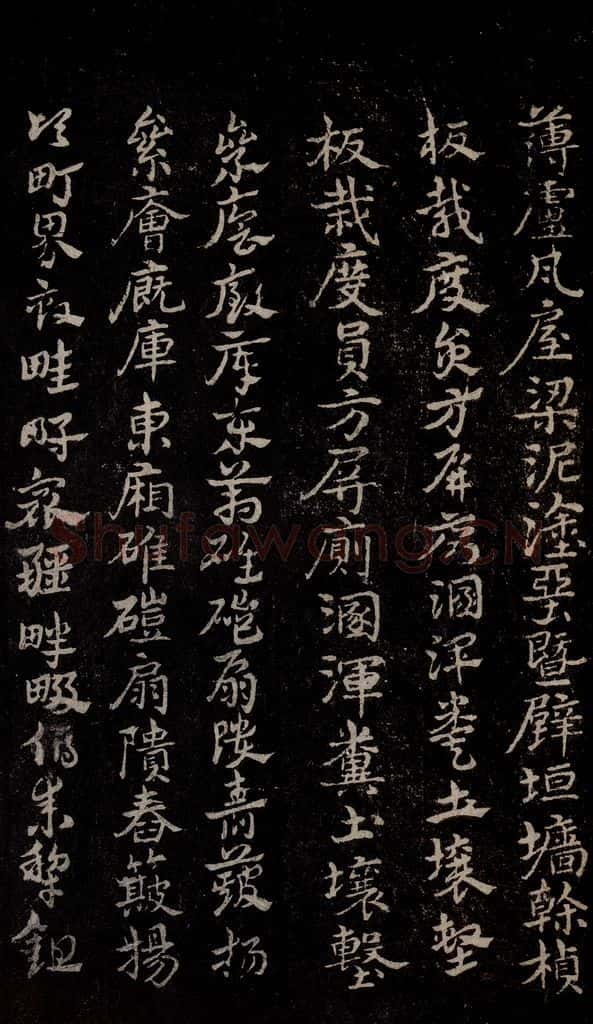 薄盧瓦屋梁泥塗堊暨壁垣墻榦楨
板栽度員方屏廁溷渾糞土壤墼
板栽度員方屏廁溷渾糞土壤墼
絫廥廐庫東箱碓磑扇隤舂簸揚
絫廥廐庫東廂碓磑扇隤舂簸揚
頃町界畝畦埒疆畔畷佰耒犁鉏
Shufawang.CN